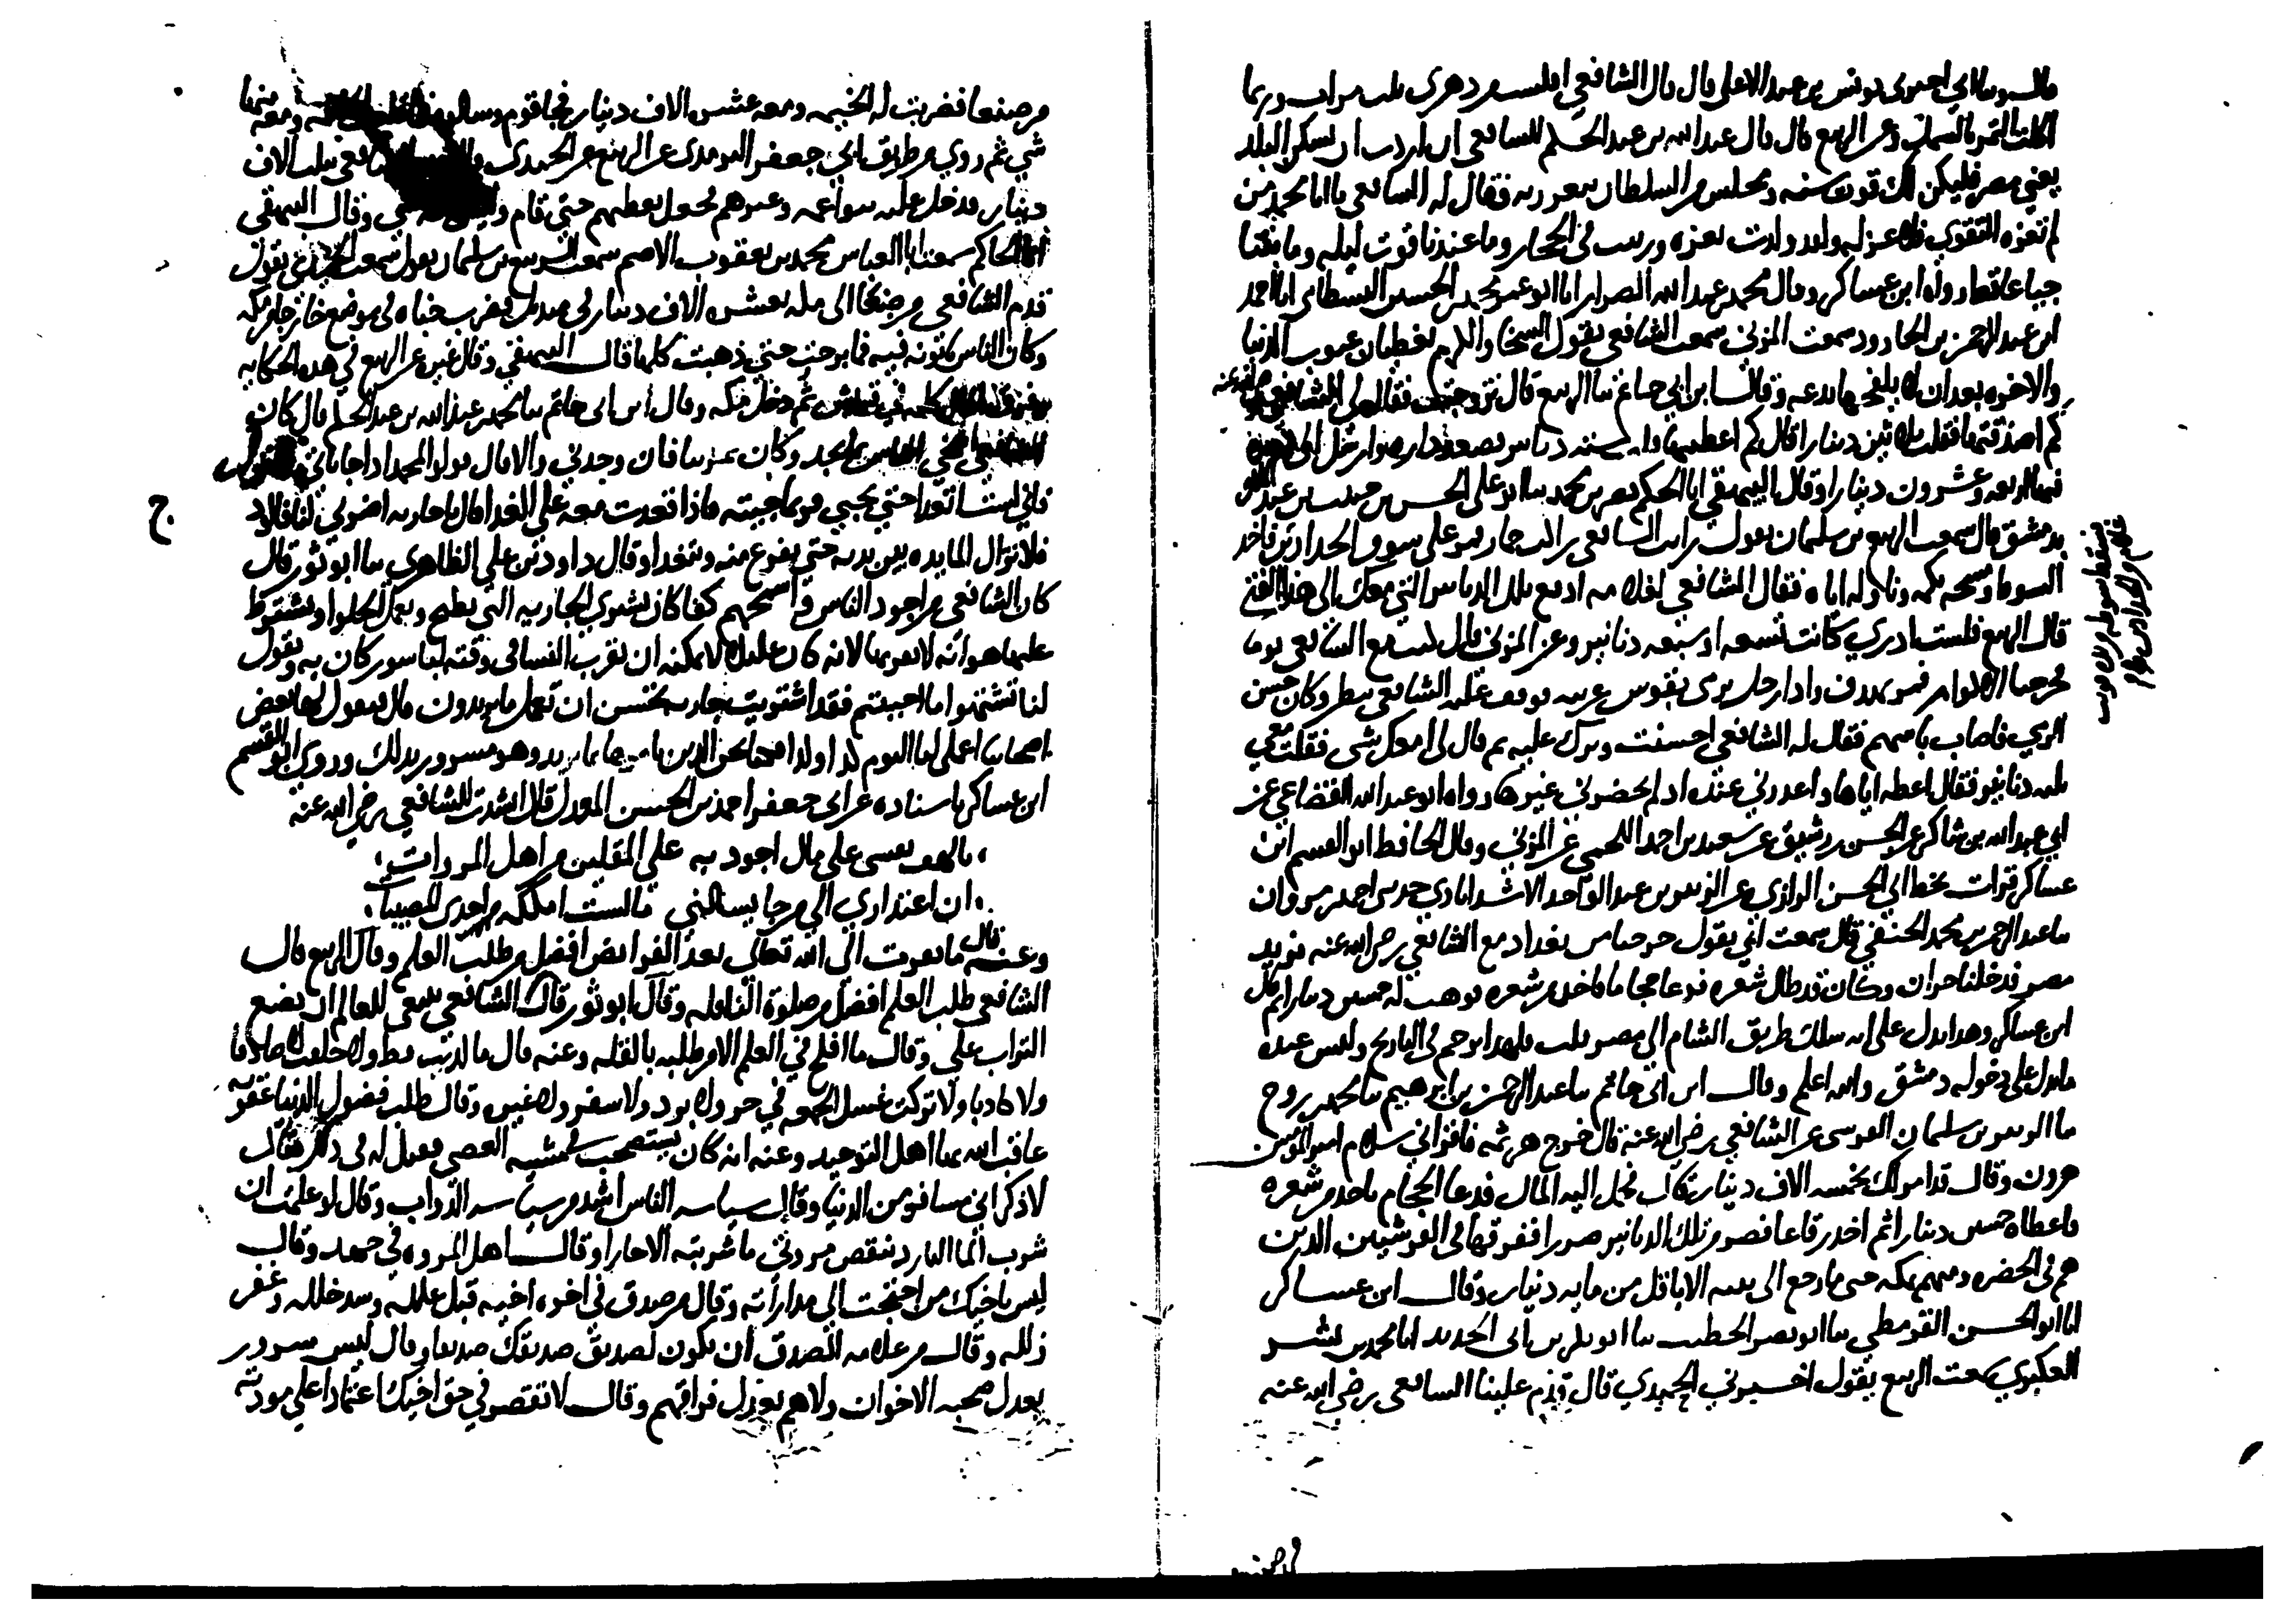 قال وثنا ابي اخبرني يونس بن عبد الاعلى قال قال الشافعي افلست من دهري ثلث مرات وربما
اكلت التمر بالسمك وعن الربيع قال قال عبد الله بن عبد الحكم للشافعي ان اردت ان تسكن البلد
يعني مصر فليكن لك قوت سنه ومجلس من السلطان تتعزز به فقال له الشافعي يا ابا محمد من
لم تعزه التقوى فلا عز له ولقد ولدت بغزه وربيت في الحجاز وما عندنا قوت ليله وما بتنا
جياعا قط رواه ابن عساكر وقال محمد بن عبد الله انا ابو عمر محمد بن الحسين البسطامي انا احمد
ابن عبد الرحمن بن الجارود سمعت المزني سمعت الشافعي يقول السخا والكرم يغطيان عيوب الدنيا
والاخره بعد ان لا يلحقهما بدعه وقال ابن ابي حاتم ثنا الربيع قال تزوجت فقال لي الشافعي رضي الله عنه
كم اصدقتها فقلت ثلاثين دينارا قال كم اعطيتها قلت سته دنانير فصعد داره وارسل الي بصره
فيها اربعه وعشرون دينارا وقال البيهقي انا الحاكم ثنا ابو علي الحسن بن حبيب بن عبد الملك
بدمشق قال سمعت الربيع بن سليمان يقول رايت الشافعي راكب حمار فمر على سوق الحدادين فاخذ
السوط ومسحه بكمه وناوله اياه فقال الشافعي لغلامه ادفع تلك الدنانير التي معك الى هذا الفتى
قال الربيع فلست ادري كانت تسعه او سبعه دنانير وعن المزني قال كنت مع الشافعي يوما
فخرجنا الاكوام فمر بهدف واذا رجل يرمي بقوس عربيه فوقف عليه الشافعي ينظر وكان حسن
الرمي فاصاب باسهم فقال له الشافعي احسنت وبرك عليه ثم قال لي امعك شي فقلت معي
ثلثه دنانير فقال اعطه اياها واعذرني عنده اذ لم يحضرني غيرها رواه ابو عبد الله القضاعي عن
ابي عبد الله بن شاكر عن الحسن بن رشيق عن سعيد بن احمد اللخمي عن المزني وقال الحافظ ابو القسم ابن
عساكر قرات بخط ابي الحسن الرازي عن الزبير بن عبد الواحد الاسداباذي حدثني احمد بن مروان
ثنا عبد الرحمن بن محمد الحنفي قال سمعت ابي يقول خرجنا من بغداد مع الشافعي رضي الله عنه نريد
مصر فدخلنا حران وكان قد طال شعره فدعا حجاما فاخذ من شعره فوهب له خمسين دينارا ثم قال
ابن عساكر وهذا يدل على انه سلك طريق الشام الى مصر
ما يدل على دخوله دمشق والله اعلم وقال ابن ابي حاتم ثنا عبد الرحمن بن ابرهيم ثنا محمد بن روح
ثنا الزبير بن سليمان القرشي عن الشافعي رضي الله عنه قال خرج هرثمه فاقراني سلام امير المؤمنين
هرون وقال قد امر لك بخمسه الاف دينار قال فحمل اليه المال فدعا الحجام فاخذ من شعره
فاعطاه خمسين دينارا ثم اخذ رقاعا فصر من تلك الدنانير صررا ففرقها في القرشيين الذين
هم في الحضره ومنهم بمكه حتى ما رجع الى بيته الا باقل من مايه دينار وقال ابن عساكر
انا ابو الحسن ثنا ابو نصر الخطيب ثنا ابو بكر بن ابي الحديد انا محمد بن بشر
العكبري سمعت الربيع يقول اخبرني الحميدي قال قدم علينا الشافعي رضي الله عنه
من صنعا فضربت له الخيمه ومعه عشره الاف دينار فجا قوم وسالوه فما قلعت الخيمه ومعه منها
شي ثم روي من طريق ابي جعفر الترمذي عن الربيع عن الحميدي الشافعي بثلثه الاف
دينار فدخل عليه بنو اعمه وغيرهم فجعل يعطيهم حتى قام وليس معه شي وقال البيهقي
انا الحاكم سمعت ابا العباس محمد بن يعقوب الاصم سمعت الربيع بن سليمان يقول سمعت الحميدي يقول
قدم الشافعي من صنعا الى مكه بعشره الاف دينار في منديل فضرب خباه في موضع خارجا من مكه
وكان الناس ياتونه فيه فما برحت حتى ذهبت كلها قال البيهقي وقال غيره عن الربيع في هذه الحكايه
ففرق المال كله في قريش ثم دخل مكه وقال ابن ابي حاتم ثنا محمد بن عبد الله بن عبد الحكم قال كان
الشافعي اسخى الناس بما يجد وكان يمر بنا فان وجدني والا قال قولوا لمحمد اذا جا ياتي
فاني لست اتغدا حتى يجي فربما جيته فاذا قعدت معه على الغدا قال يا جاريه اضربي لنا فالوذ
فلا تزال المايده بين يديه حتى يفرغ منه ويتغدا وقال داود بن علي الظاهري ثنا ابو ثور قال
كان الشافعي من اجود الناس واسمحهم كفا كان يشتري الجاريه التي تطبخ وتعمل الحلوا ويشترط
عليها هو انه لا يقربها لانه كان عليلا لا يمكنه ان يقرب النسا في وقته لباسور كان به ويقول
لنا تشتهوا ما احببتم فقد اشتريت جاريه تحسن ان تعمل ما تريدون قال فيقول لها بعض
اصحابنا اعملي لنا اليوم كذا وكذا فكنا نحن الذين نامرها بما نريد وهو مسرور بذلك وروى ابو القسم
ابن عساكر باسناده عن ابي جعفر احمد بن الحسن المعدل قال انشدت للشافعي رضي الله عنه
يالهف نفسي على مال اجود به على المقلين من اهل المروات
ان اعتذاري الى من جا يسالني ما لست املكه من احدى المصيبات
وعنه قال ما تقرب الى الله تعالى بعد الفرايض افضل من طلب العلم وقال الربيع قال
الشافعي طلب العلم افضل من صلوة النافله وقال ابو ثور قال الشافعي ينبغي للعالم ان يضع
التراب على وقال ما افلح في العلم الا من طلبه بالقله وعنه قال ما كذبت قط ولا حلفت لا صادقا
ولا كاذبا ولا تركت غسل الجمعه في حر ولا برد ولا سفر ولا غيره وقال طلب فضول الدنيا عقوبه
عاقب الله بها اهل التوحيد وعنه انه كان يستصحب في مشيه العصى فقيل له في ذلك فقال
لاذكر اني مسافر من الدنيا وقال سياسه الناس اشد من سياسه الدواب وقال لو علمت ان
شرب الما البارد ينقص مروتي ما شربته الا حارا وقال اهل المروه في جهد وقال
ليس باخيك من احتجت الى مداراته وقال من صدق في اخوه اخيه قبل علله وسد خلله وغفر
زلله وقال من علامه الصدق ان يكون لصديق صديقك صديقا وقال ليس سرور
يعدل صحبه الاخوان ولا هم يعدل فراقهم وقال لا تقصر في حق اخيك اعتمادا على مودته